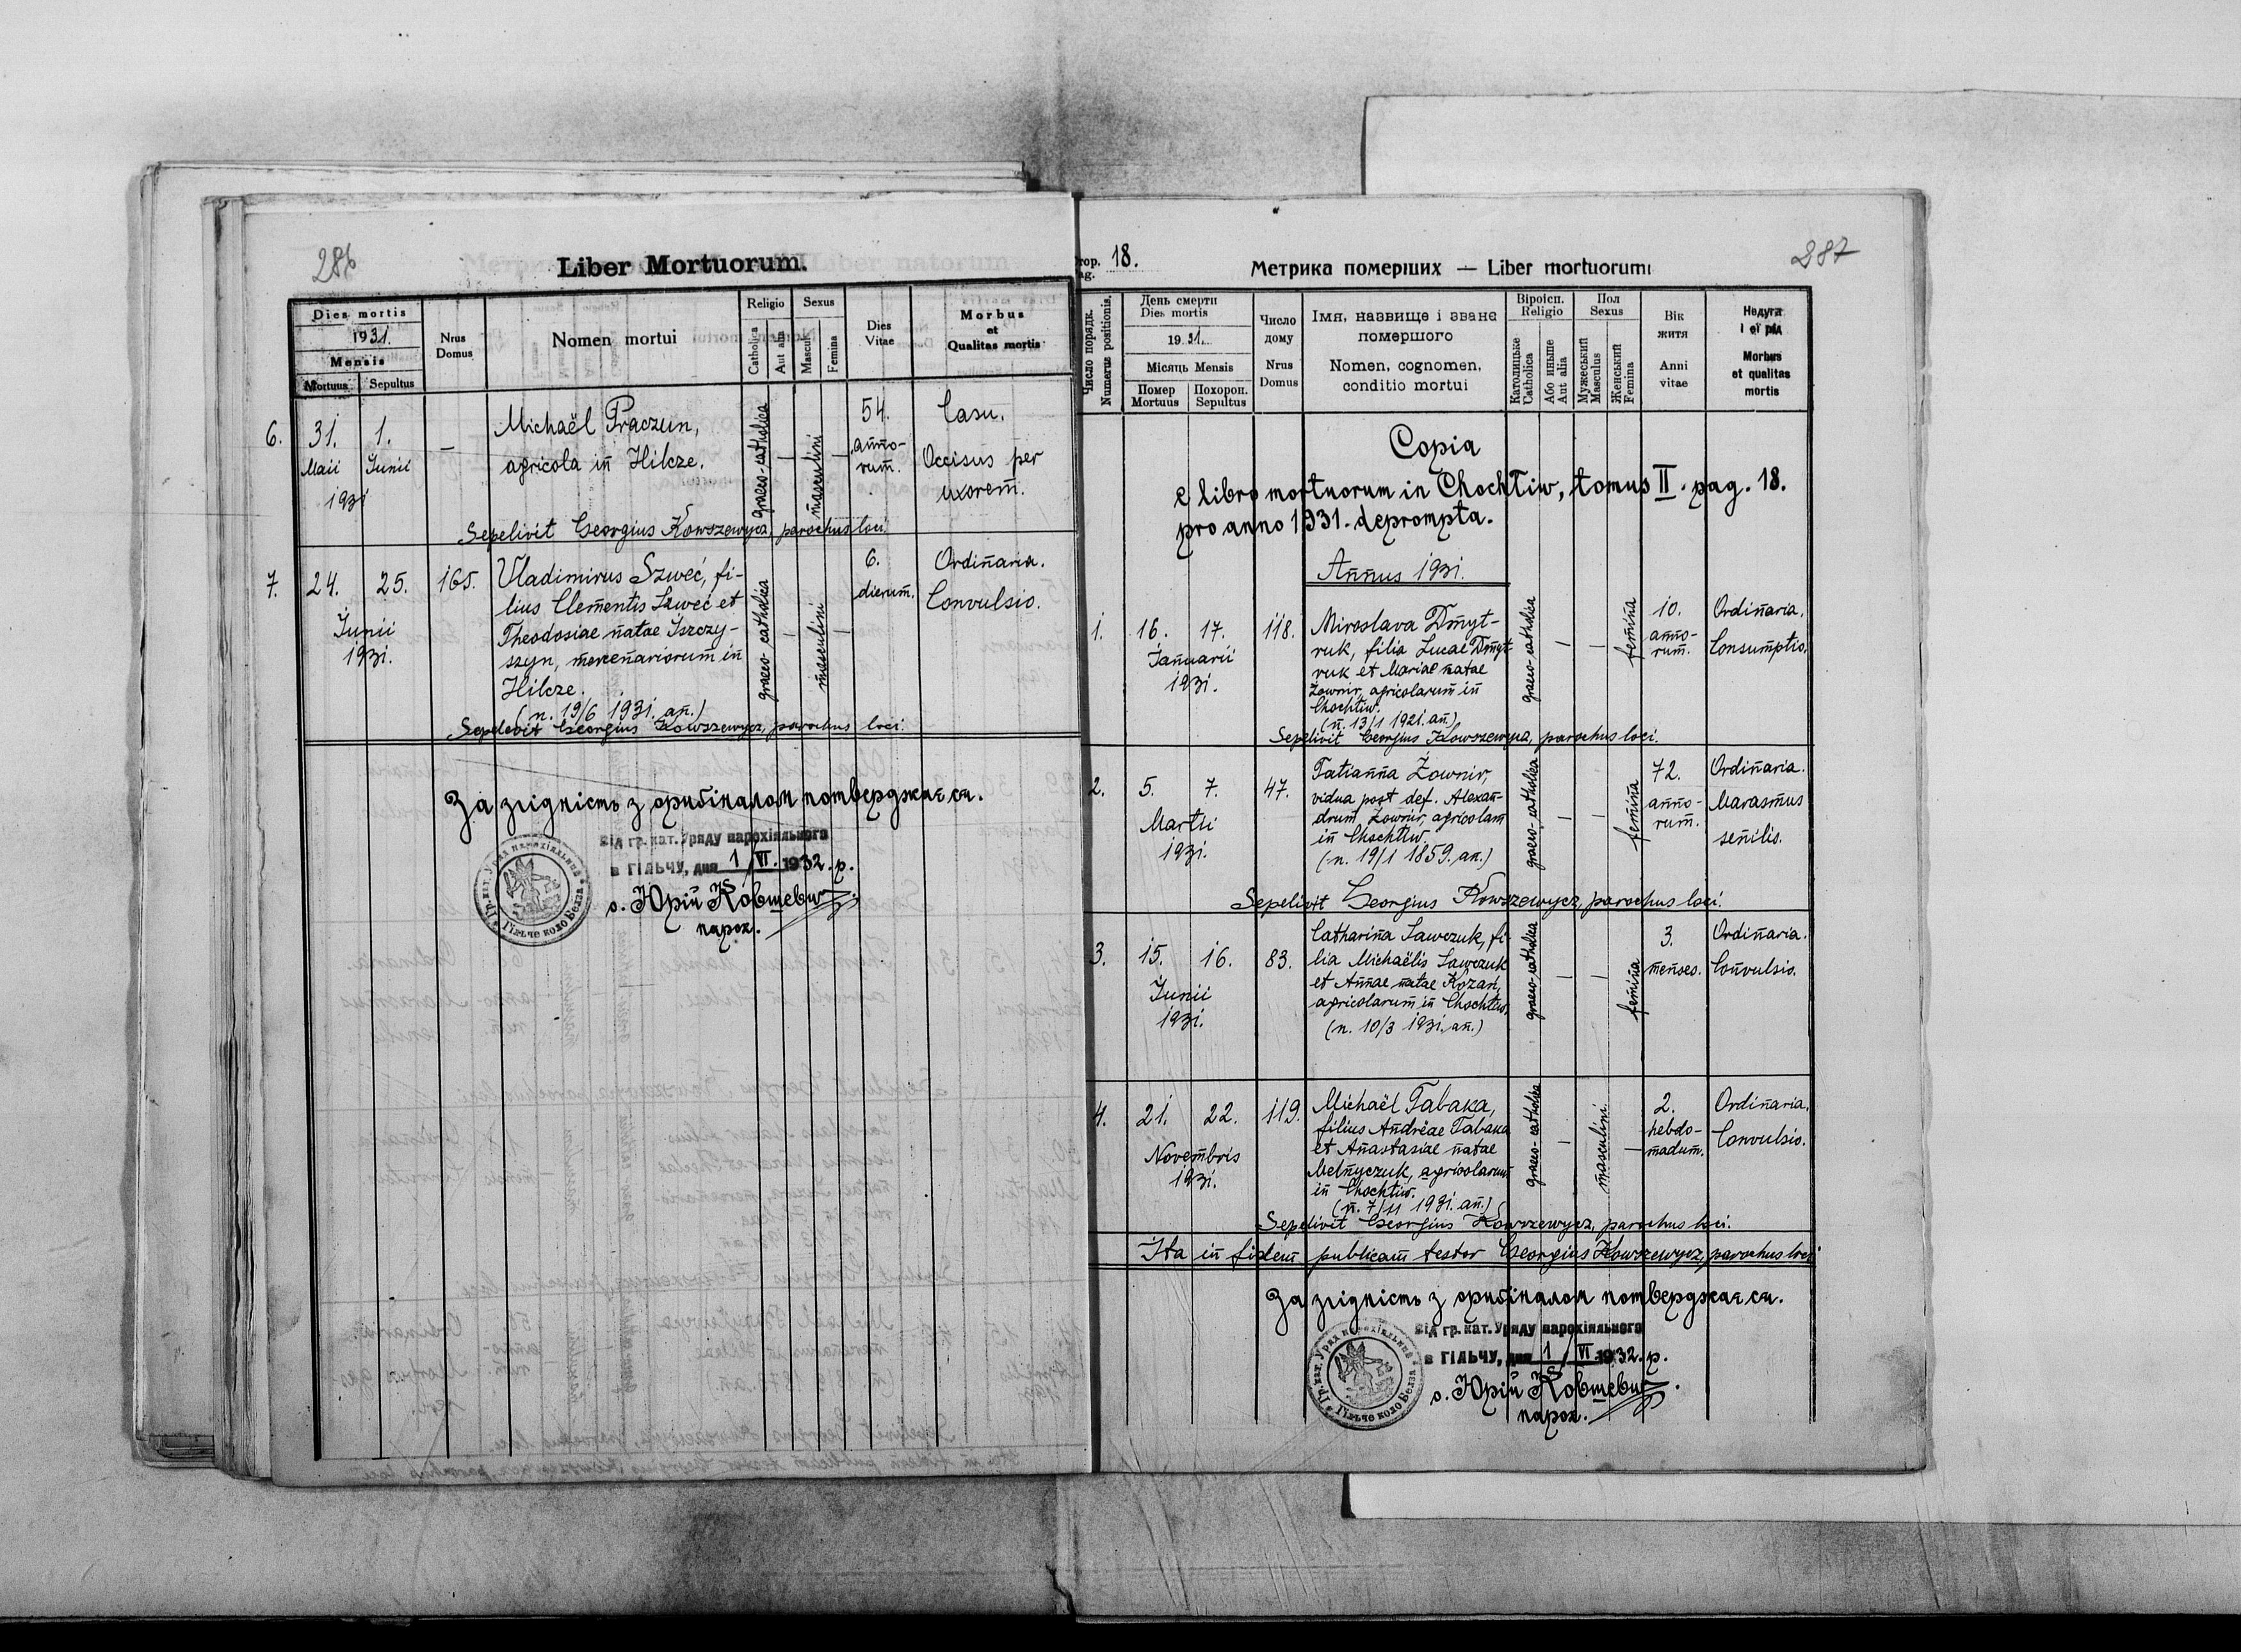 286
Liber Mortuorum.
Dies mortis
1931.
Mensis
Mortuus
Sepultus
Nrus
Domus
Nomen mortui
Religio
Catholica
Aut alia
Sexus
Mascul.
Femina
Dies
Vitae
Morbus
et
Qualitas mortis
6.
31.
Maii
1931
1.
Junii
—
Michaël Praczun,
agricola in Hilcze.
graeco-catholica
—
masculini
—
54.
anno-
rum.
Casu.
Occisus per
uxorem.
Sepelivit Georgius Kowszewycz, parochus loci.
7.
24.
25.
Junii
1931.
165.
Vladimirus Szweć, fi-
lius Clementis Szweć et
Theodosiae natae Iszczy-
szyn, mercenariorum in
Hilcze.
(n. 19/6 1931. an.)
graeco-catholica
—
masculini
—
6.
dierum.
Ordinaria.
Convulsio.
Sepelivit Georgius Kowszewycz, parochus loci.
За згідність з ориґіналом потверджає ся.
Від гр. кат. Уряду парохіяльного
в ГІЛЬЧУ, дня 1/VI. 1932. р.
о. Юрій Ковшевич
парох.
Гр. кат. Уряд парохіяльний
Гільче коло Белза
287
Стор.
Pag.
18.
Метрика померших — Liber mortuorum
Число порядк.
Numerus positionis.
День смерти
Dies mortis
1931.
Місяць Mensis
Помер
Mortuus
Похорон.
Sepultus
Число
дому
Nrus
Domus
Імя, назвище і зване
помершого
Nomen, cognomen,
conditio mortui
Віроісп.
Religio
Католицьке
Catholica
Або иньше
Aut alia
Пол
Sexus
Мужеський
Masculus
Женський
Femina
Вік
житя
Anni
vitae
Недуга
і єї рід
Morbus
et qualitas
mortis
Copia
e libro mortuorum in Chochtiw, tomus II. pag. 18.
pro anno 1931. deprompta.
Annus 1931.
1.
16.
17.
Januarii
1931.
118.
Miroslava Dmyt-
ruk, filia Lucae Dmyt-
ruk et Mariae natae
Żownir, agricolarum in
Chochtiw.
(n. 13/1 1921. an.)
graeco-catholica
—
—
femina
10.
anno-
rum.
Ordinaria.
Consumptio.
Sepelivit Georgius Kowszewycz, parochus loci.
2.
5.
7.
Martii
1931.
47.
Tatianna Żownir,
vidua post def. Alexan-
drum Żownir, agricolam
in Chochtiw.
(n. 19/1 1859. an.)
graeco-catholica
—
—
femina
72.
anno-
rum.
Ordinaria.
Marasmus
senilis.
Sepelivit Georgius Kowszewycz, parochus loci.
3.
15.
16.
Junii
1931.
83.
Catharina Sawczuk, fi-
lia Michaëlis Sawczuk
et Annae natae Kozan,
agricolarum in Chochtiw.
(n. 10/3 1931. an.)
graeco-catholica
—
—
femina
3.
menses.
Ordinaria.
Convulsio.
4.
21.
22.
Novembris
1931.
119.
Michaël Tabaka,
filius Andreae Tabaka
et Anastasiae natae
Melnyczuk, agricolarum
in Chochtiw.
(n. 7/11 1931. an.)
graeco-catholica
—
masculini
—
2.
hebdo-
madum.
Ordinaria.
Convulsio.
Sepelivit Georgius Kowszewycz, parochus loci.
Ita in fidem publicam testor Georgius Kowszewycz, parochus loci
За згідність з ориґіналом потверджає ся.
Від гр. кат. Уряду парохіяльного
в ГІЛЬЧУ, дня 1/VI 1932. р.
о. Юрій Ковшевич.
парох.
Гр. кат. Уряд парохіяльний
Гільче коло Белза